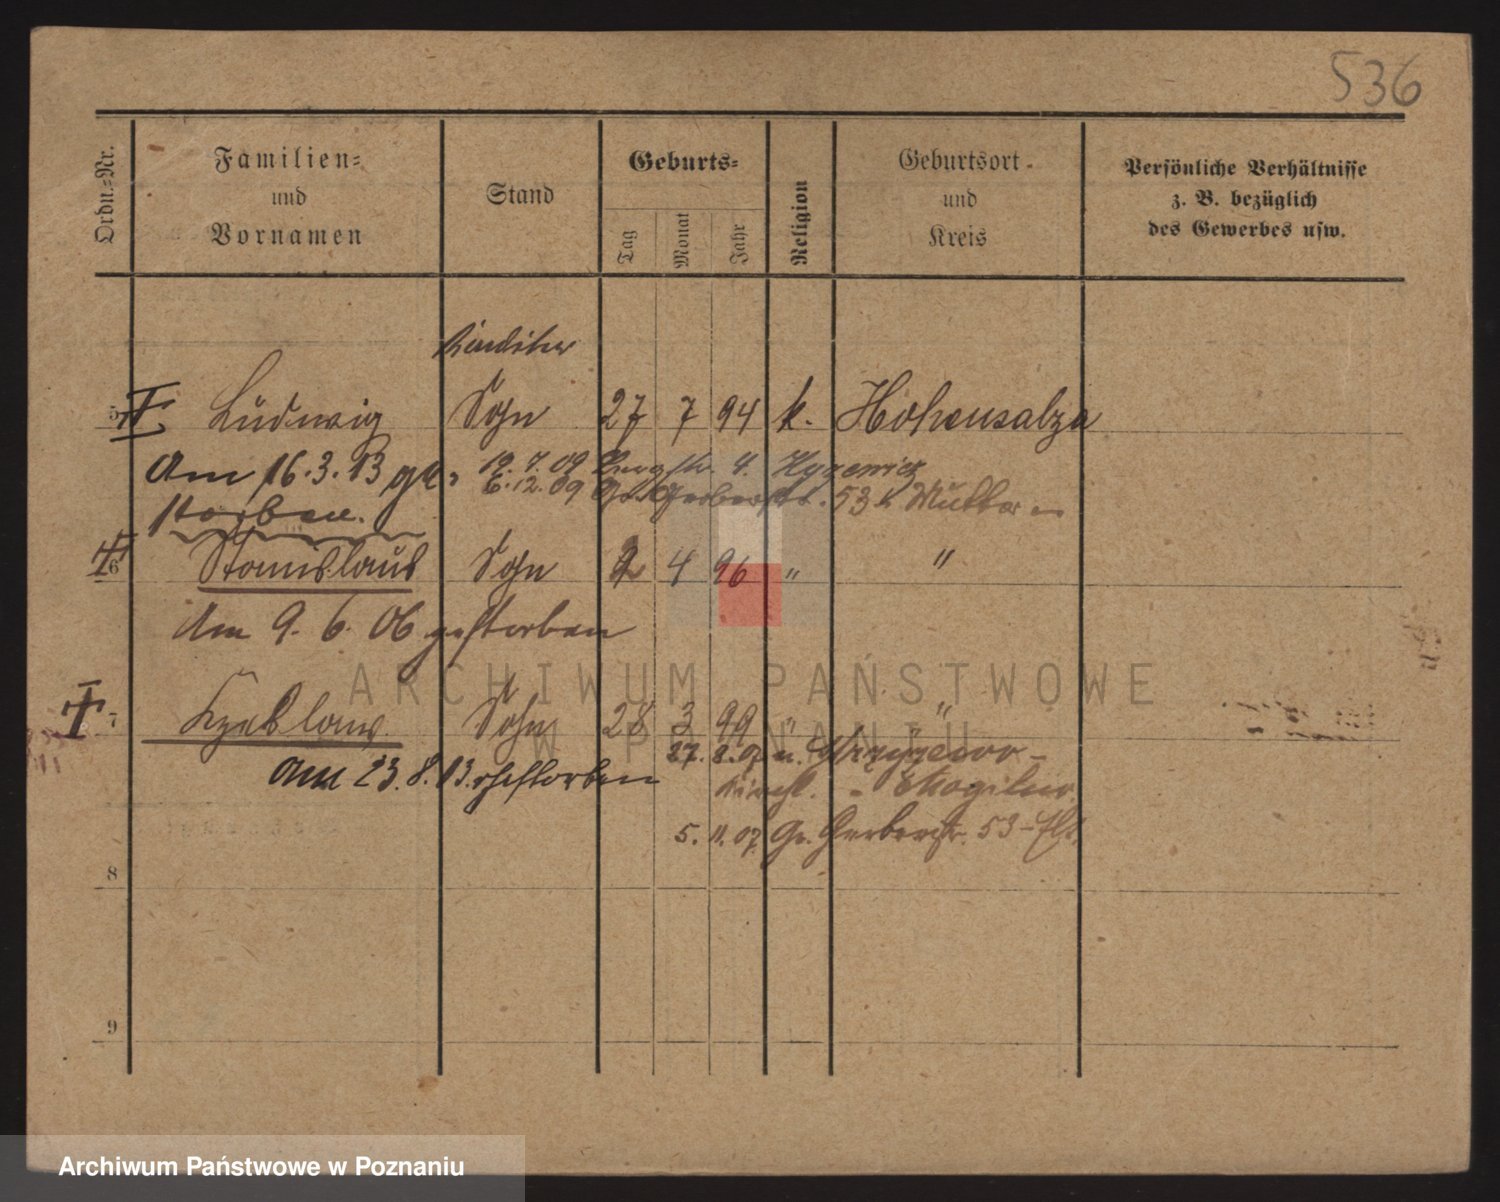 536
Ordn.-Nr.
Familien-
und
Vornamen
Stand
Geburts-
Tag
Monat
Jahr
Religion
Geburtsort
und
Kreis
Persönliche Verhältnisse
z. B. bezüglich
des Gewerbes usw.
Konditor
5 Ludwig Sohn 27 7 94 k. Hohensalza
Am 16.3.13 ge- 19. 7. 09
storben. 6.12.09 Gr. Gerberstr. 53 z. Mutter
6 Stanislaus Sohn 2 4 96 " "
Am 9. 6. 06 gestorben
7 Czeslaus Sohn 28 3 99 " "
Am 23.8.13. gestorben 27. 8. 07 n.
Mogilno
5. 11. 07 Gr. Gerberstr. 53
8
9
ARCHIWUM PAŃSTWOWE
W POZNANIU
Archiwum Państwowe w Poznaniu